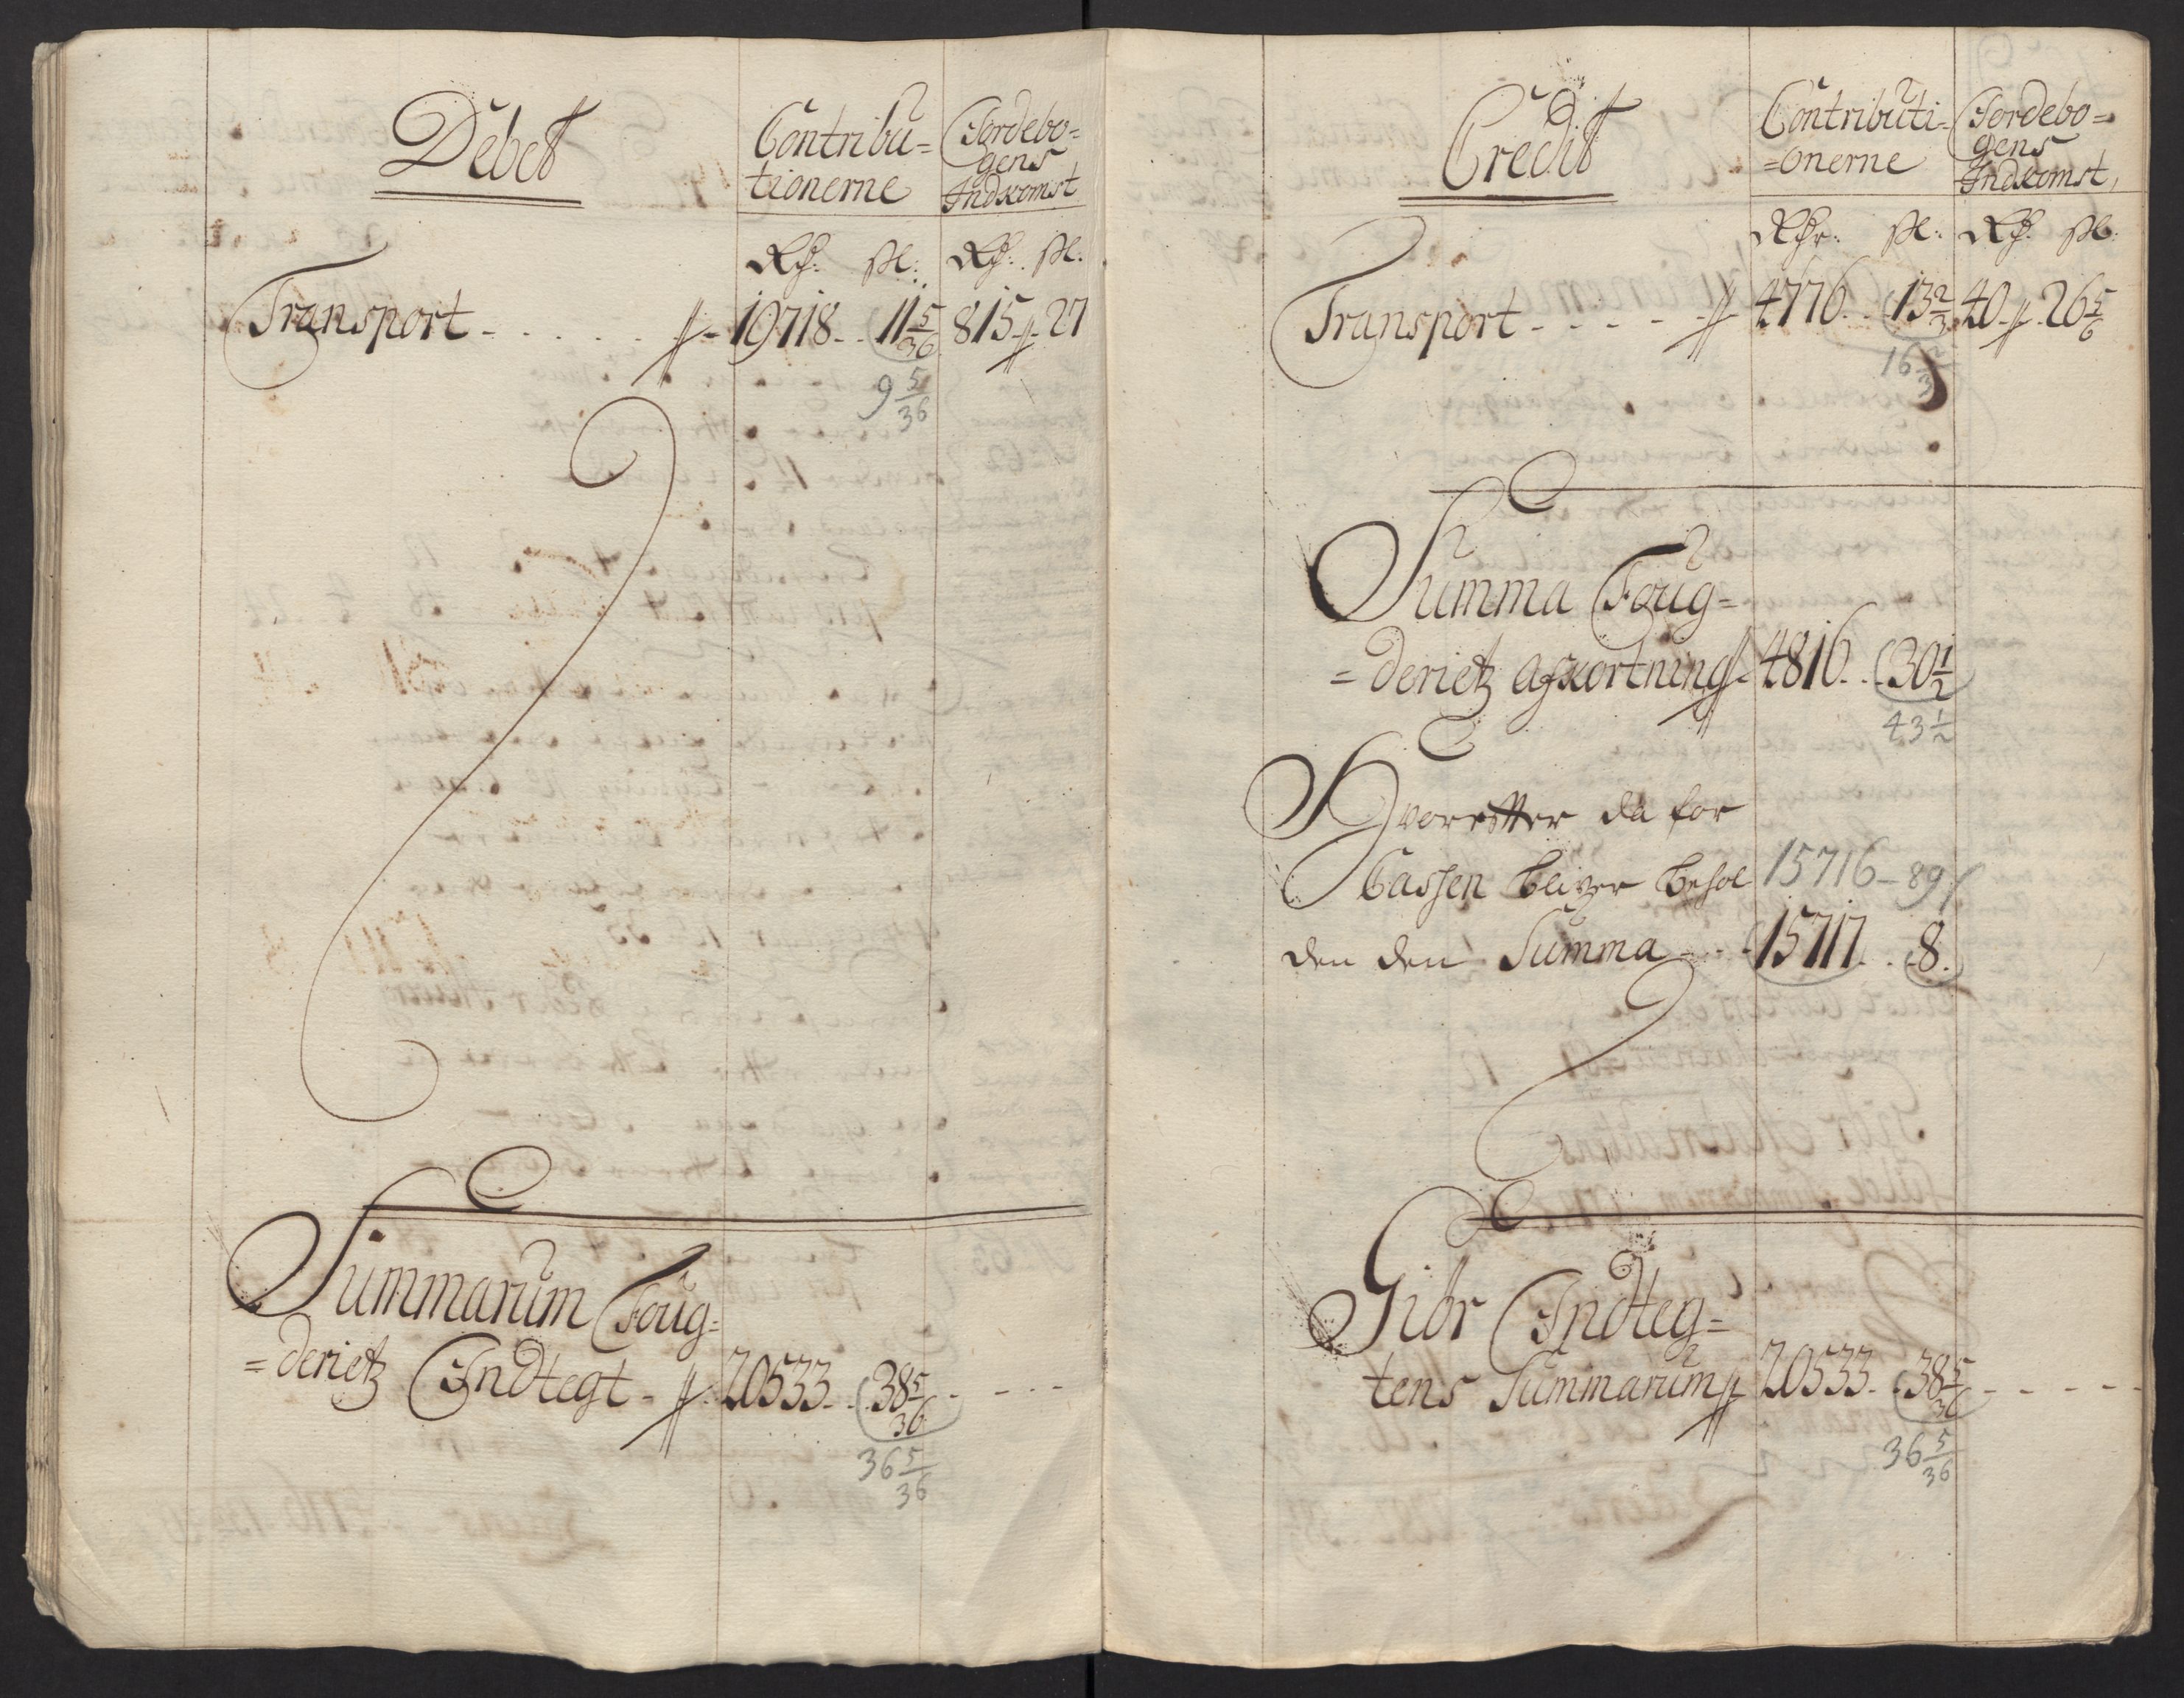 Debet
Contribu=
tionerne
Jordebo=
gens
Indkomst
Rdr: ſk: Rdr: ſk:
Transport - 19718 - 11 5/36 815 - 27
9 5/36
Summarum Foug=
=derietz Indtegt - 20533 - 38 5/36
36 5/36
Credit
Contributi=
=onerne
Jordebo=
gens
Indkomst,
Rdr: ſk: Rdr: ſk:
Transport - 4776 - 13 2/3 40 - 26 5/6
16 2/3
Summa Foug=
=derietz Afkortning 4816 - 30 1/2
43 1/2
Hvorefter da for
Cassen bliver behol 15716 - 89
den den Summa - 15717 - 8.
Giör Indteg=
tens Summarum 20533 - 38 5/36
36 5/36